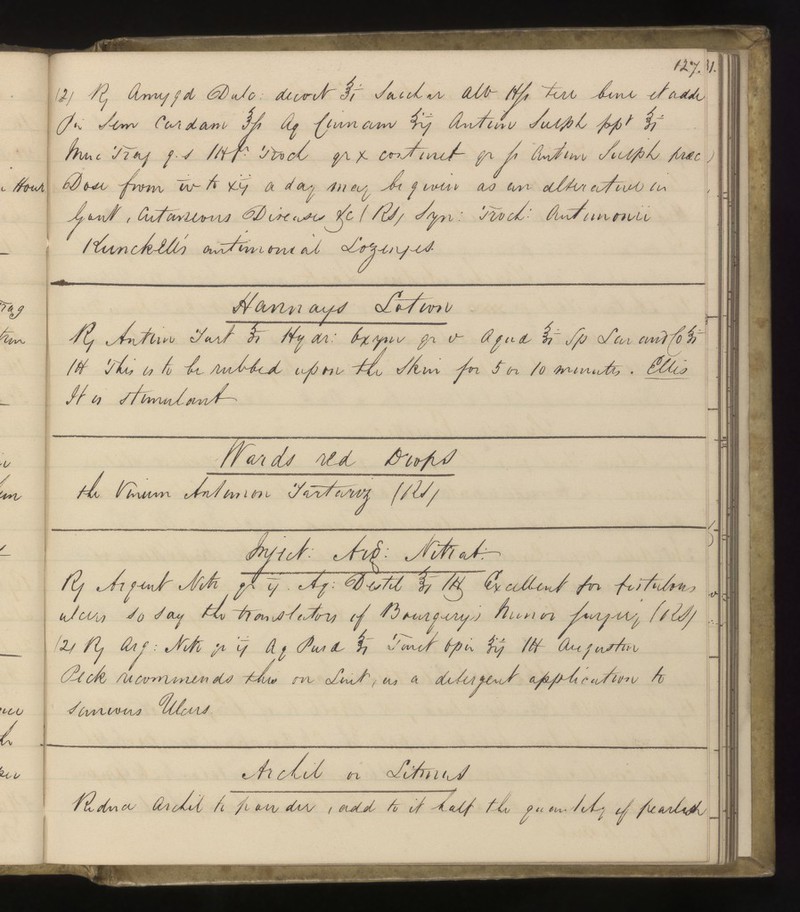 127.
(2) R Amygd Dulc: decort ℥i Sacchar alb ℔ss tere bene et adde
Pu Sem Cardam ℥ss Aq Cinnam ʒij Antim Sulph ppt ℥i
Muc Trag q.s Ft Troch gr x continet gr ss Antim Sulph præc
Dose from iv to xij a day may be given as an alterative in
Gout, Cutaneous Diseases &c (RS) Syn: Troch: Antimonii
Kunckell's antimonial Lozenges.
Hannays Lotion
R Antim Tart ʒi Hydr: Oxym gr v Aquæ ℥i Sp Lavand Co ʒi
Ft This is to be rubbed upon the Skin for 5 or 10 minutes. Ellis
It is stimulant
Wards red Drops
the Vinum Antimon Tartariz (RS)
Inject: Arg: Nitrat:
R Argent Nitr gr ij Aq: Destil ℥i Ft Excellent for fistulous
ulcers so say the translators of Bourgery's Minor surgery (RS)
(2) R Arg: Nitr gr ij Aq Puræ ℥i Tinct Opii ʒij Ft Augustin
Peck recommends this on Lint, as a detergent application to
sanious Ulcers.
Archil or Litmus
Reduce Archil to powder, add to it half the quantity of pearlash
Hour